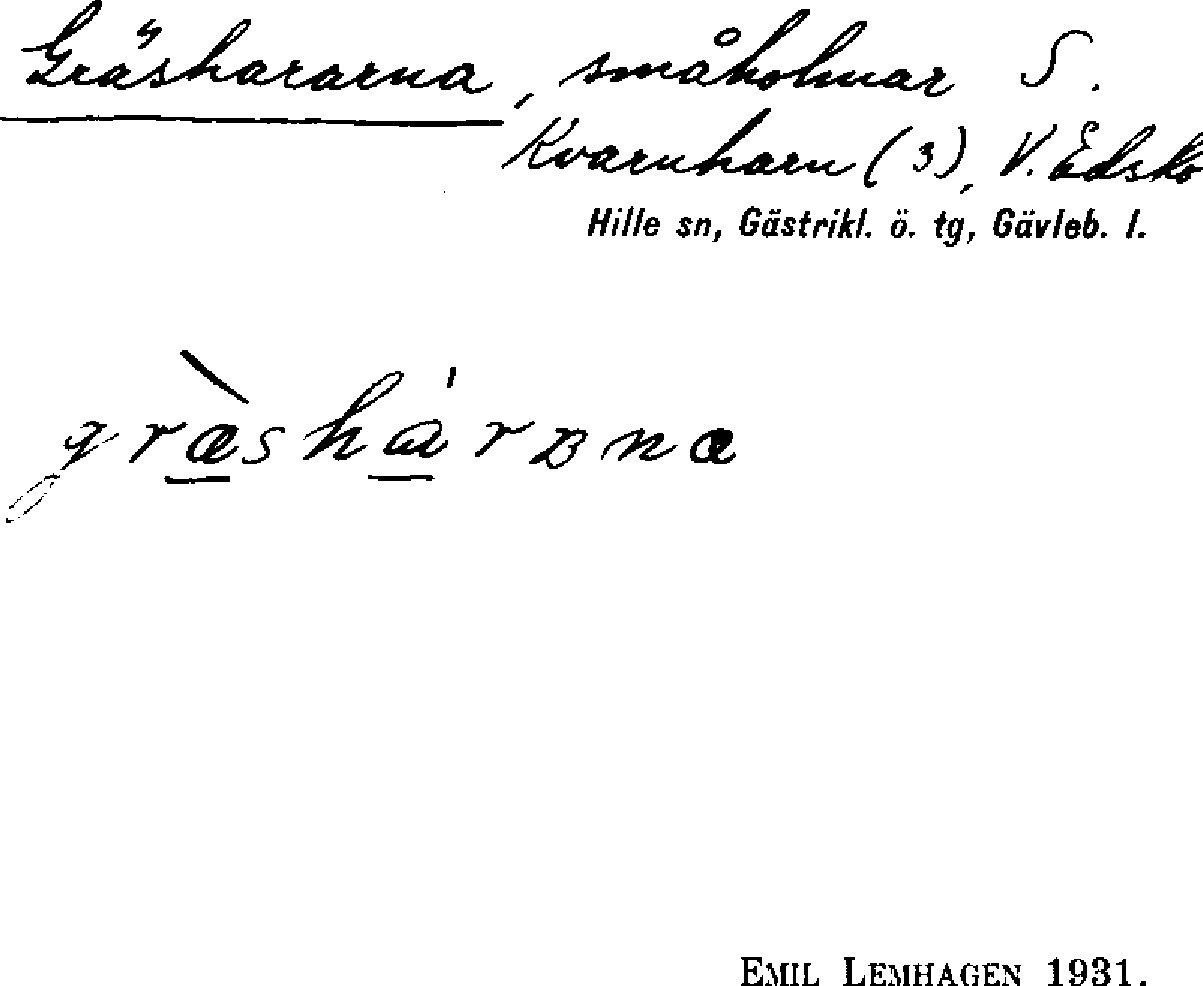 Gräshararna, småholmar S.
Kvarnharn (3), V. Edsko
Hille sn, Gästrikl. ö. tg, Gävleb. l.
EMIL LEMHAGEN 1931.